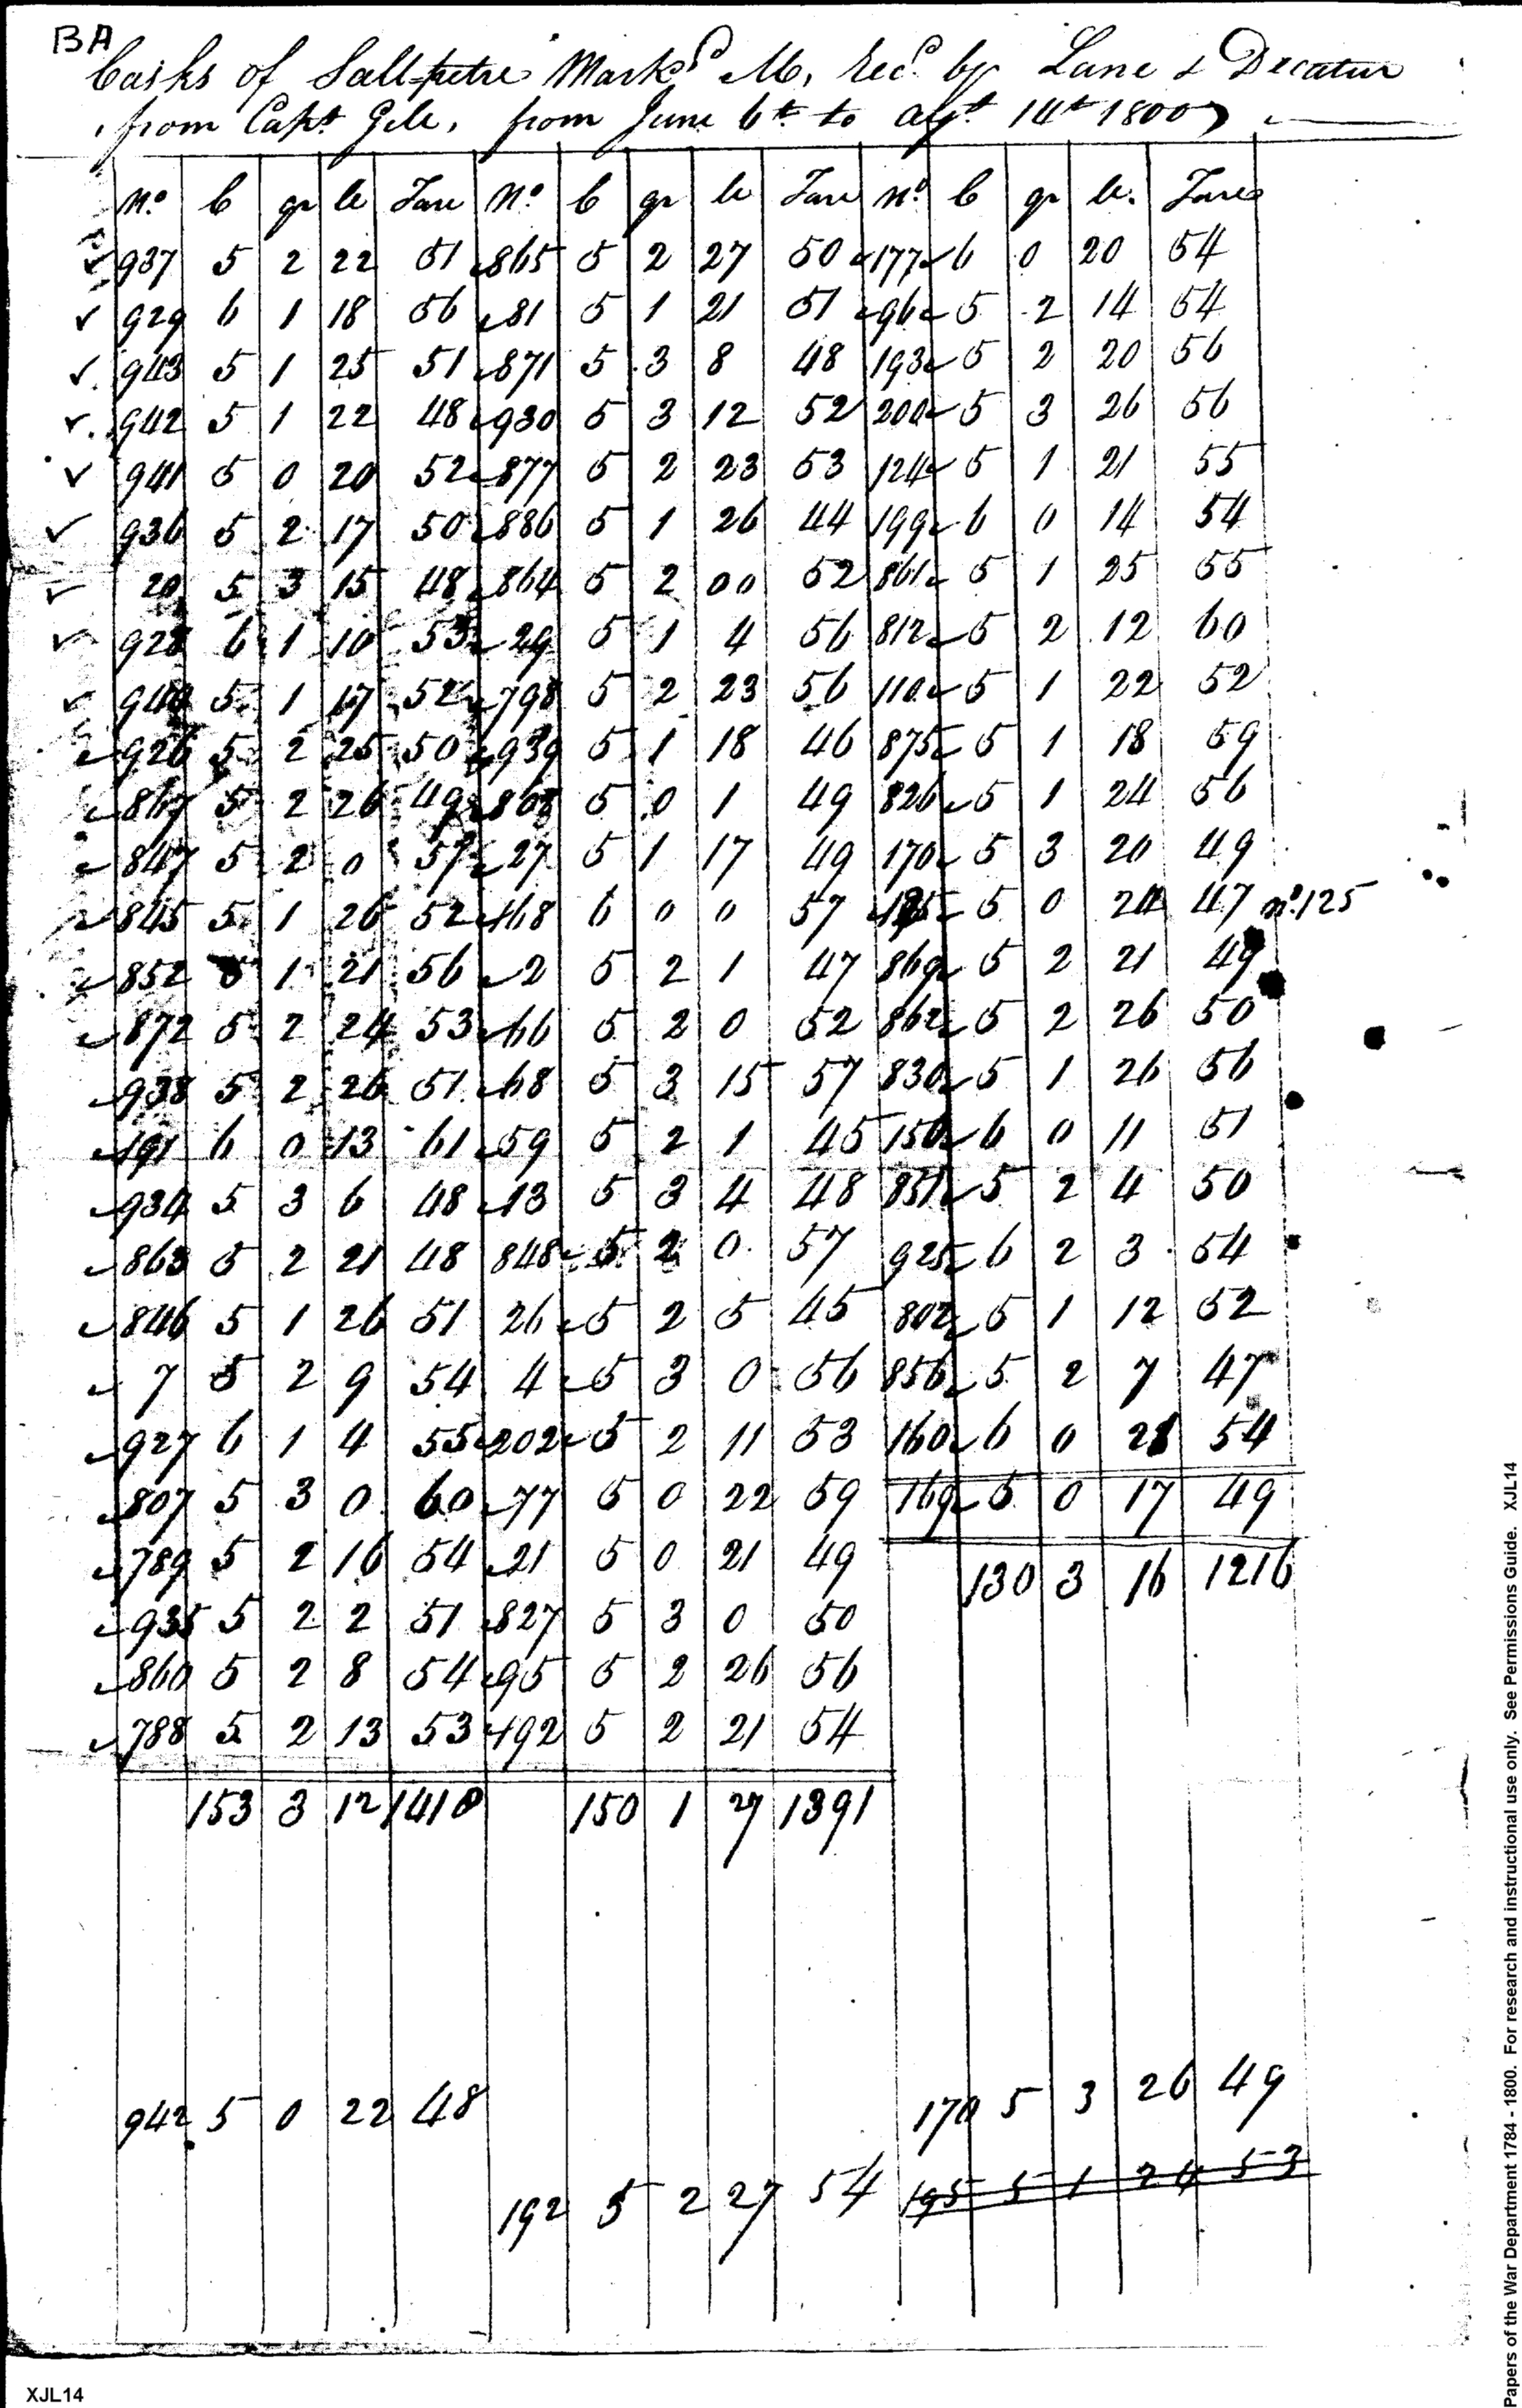 BA
Casks of Salt-petre Markd M, recd by Lane & Decatur
from Capt Gele, from June 6th to Augt 14th 1800
No C qr lb Tare No C qr lb Tare No C qr lb. Tare
937 5 2 22 51 865 5 2 27 50 177 6 0 20 54
929 6 1 18 56 81 5 1 21 51 96 5 2 14 54
943 5 1 25 51 871 5 3 8 48 193 5 2 20 56
942 5 1 22 48 930 5 3 12 52 200 5 3 26 56
941 5 0 20 52 877 5 2 23 53 124 5 1 21 55
936 5 2 17 50 886 5 1 26 44 199 6 0 14 54
20 5 3 15 48 864 5 2 00 52 861 5 1 25 55
928 6 1 10 53 29 5 1 4 56 812 5 2 12 60
940 5 1 17 52 798 5 2 23 56 110 5 1 22 52
926 5 2 25 50 939 5 1 18 46 875 5 1 18 59
867 5 2 26 49 868 5 0 1 49 826 5 1 24 56
847 5 2 0 57 27 5 1 17 49 170 5 3 20 49
845 5 1 26 52 168 6 0 0 57 125 5 0 24 47 no. 125
852 5 1 21 56 2 5 2 1 47 869 5 2 21 49
872 5 2 24 53 66 5 2 0 52 862 5 2 26 50
938 5 2 26 51 68 5 3 15 57 830 5 1 26 56
191 6 0 13 61 59 5 2 1 45 150 6 0 11 51
934 5 3 6 48 13 5 3 4 48 851 5 2 4 50
863 5 2 21 48 848 5 2 0 57 925 6 2 3 54
846 5 1 26 51 26 5 2 5 45 802 5 1 12 52
7 5 2 9 54 4 5 3 0 56 856 5 2 7 47
927 6 1 4 55 202 5 2 11 53 160 6 0 21 54
807 5 3 0 60 77 5 0 22 59 169 5 0 17 49
789 5 2 16 54 21 5 0 21 49 130 3 16 1216
935 5 2 2 51 827 5 3 0 50
860 5 2 8 54 95 5 2 26 56
788 5 2 13 53 192 5 2 21 54
153 3 12 1418 150 1 27 1391
942 5 0 22 48 170 5 3 26 49
192 5 2 27 54 195 5 1 24 53
XJL14
Papers of the War Department 1784 - 1800. For research and instructional use only. See Permissions Guide. XJL14